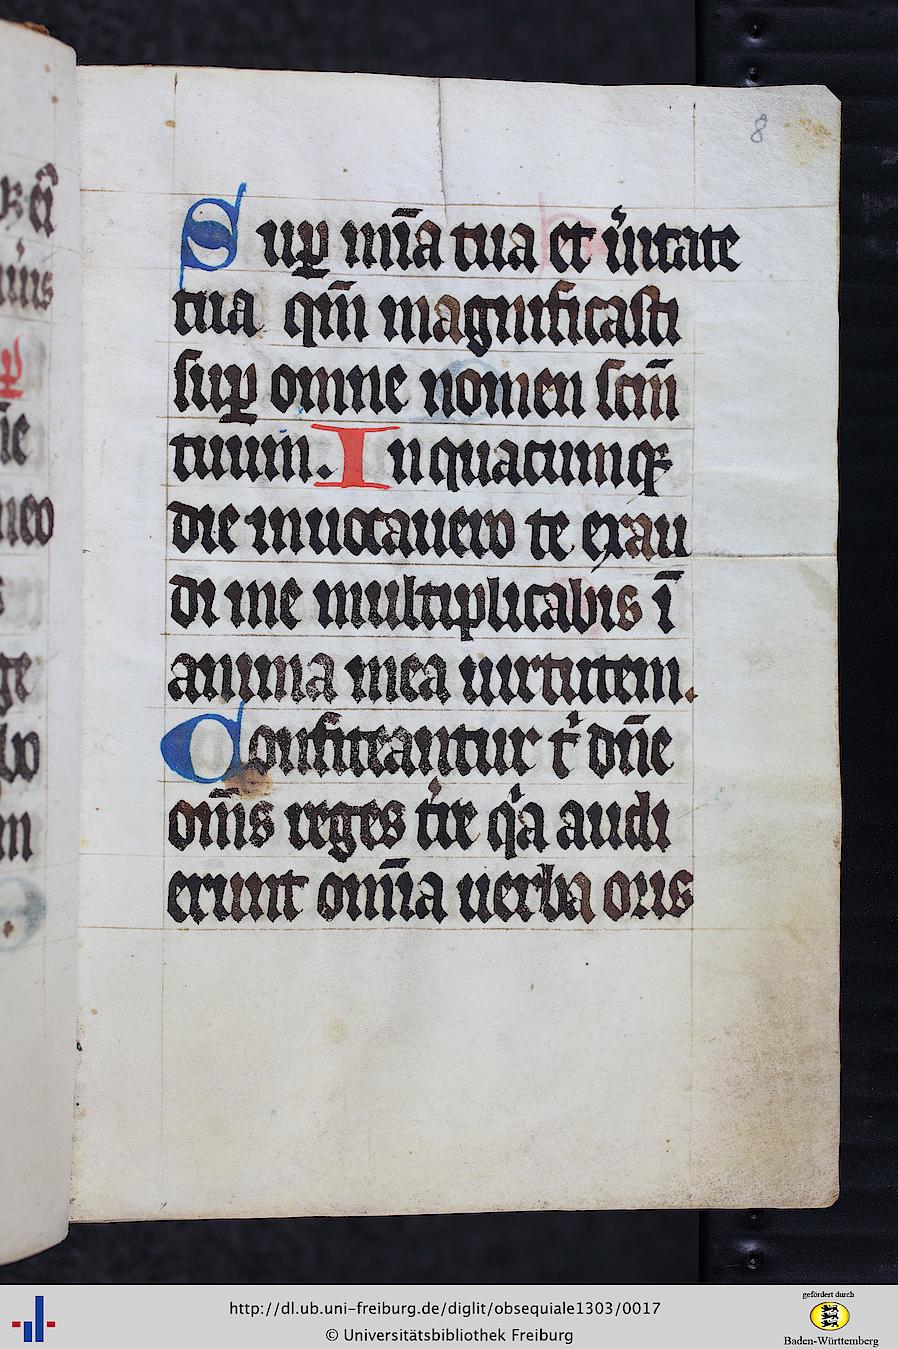 8
Sup̱ mīa tua et ůitate
tua qm̄ magnificasti
sup̱ omne nomen sctm̄
tuum. In quacumqꝫ
die inuocauero te exau
di me multiplicabis ī
anima mea uirtutem.
Confiteantur tⁱ dn̄e
om̄s reges tre qⁱa audi
erunt om̄ia uerba oris
http://dl.ub.uni-freiburg.de/diglit/obsequiale1303/0017
© Universitätsbibliothek Freiburg
gefördert durch
Baden-Württemberg